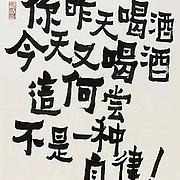 你昨天喝酒
今天又喝酒
這何尝
不是一种
自律！